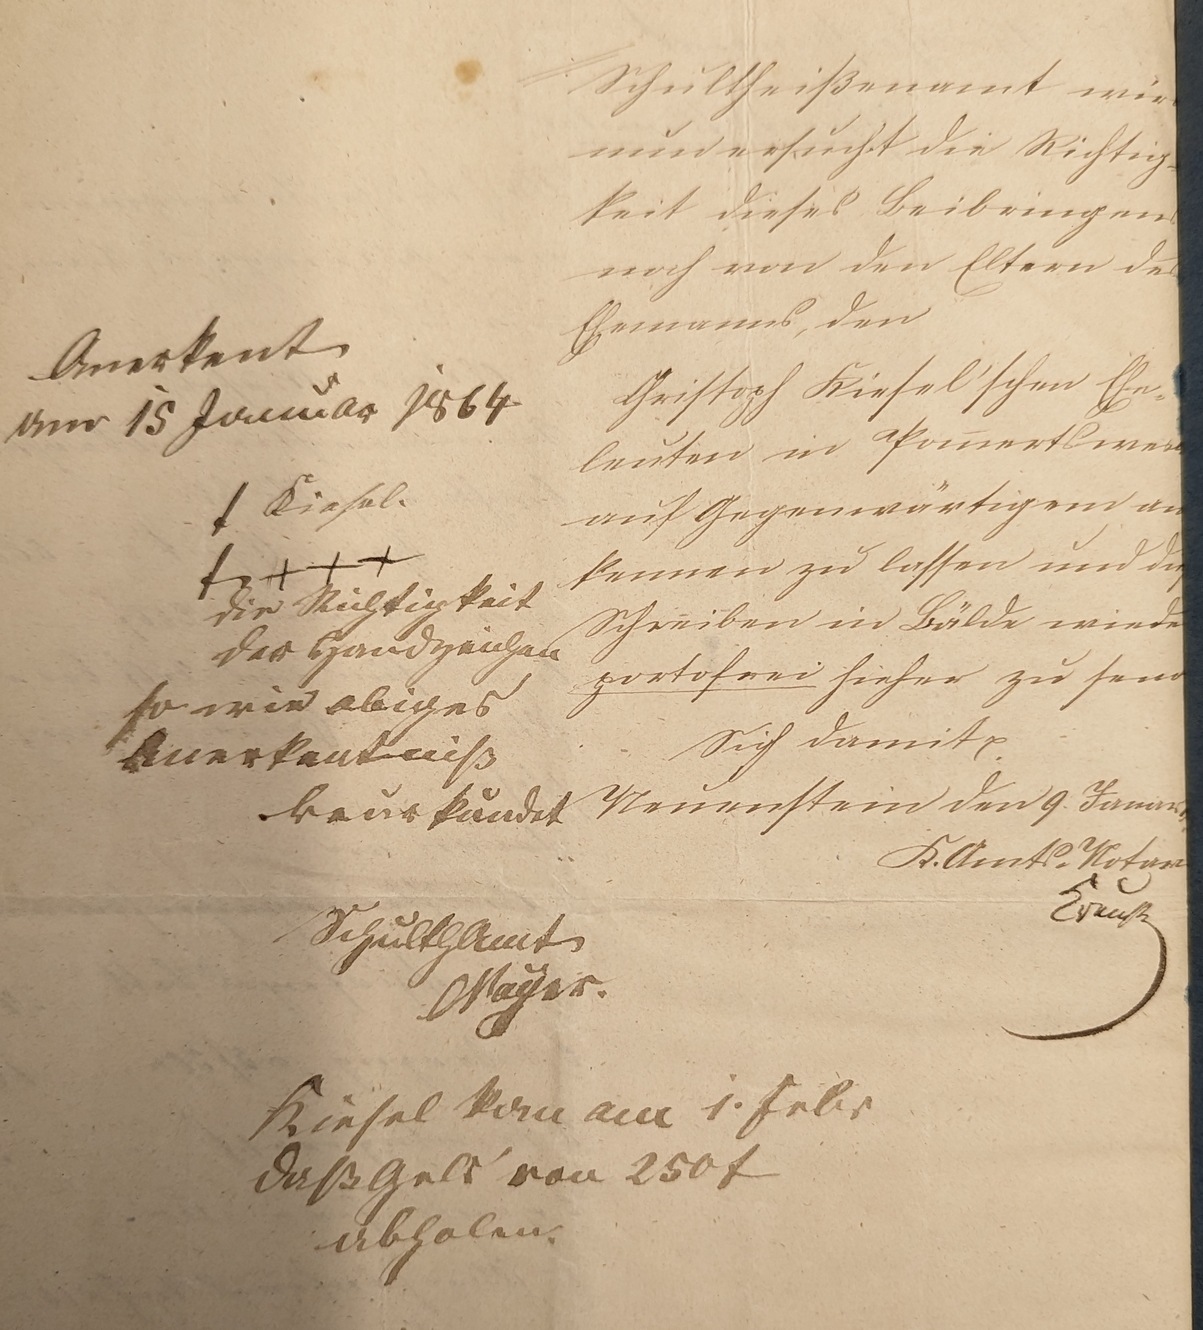 Schultheißenamt wir
nun ersucht die Richtig-
keit dieses Beibringens
noch von den Eltern des
Ehemanns, den
Christoph Kiesel'schen Ehe-
leuten in
auf Gegenwärtigem an
kennen zu lassen und die
Schreiben in Bälde wiede
portofrei hieher zu send
Sich damit
Neuenstein den 9. Januar
K. Amts-Notar
Anerkent
am 15 Januar 1864
† Kiesel.
† +++
die Richtigkeit
der Handzeichen
so wie obiges
Anerkentniß
beurkundet
SchulthAmt
Mayer.
Kiesel kan am 1. Febr
daß Geld von 250 f
abholen.